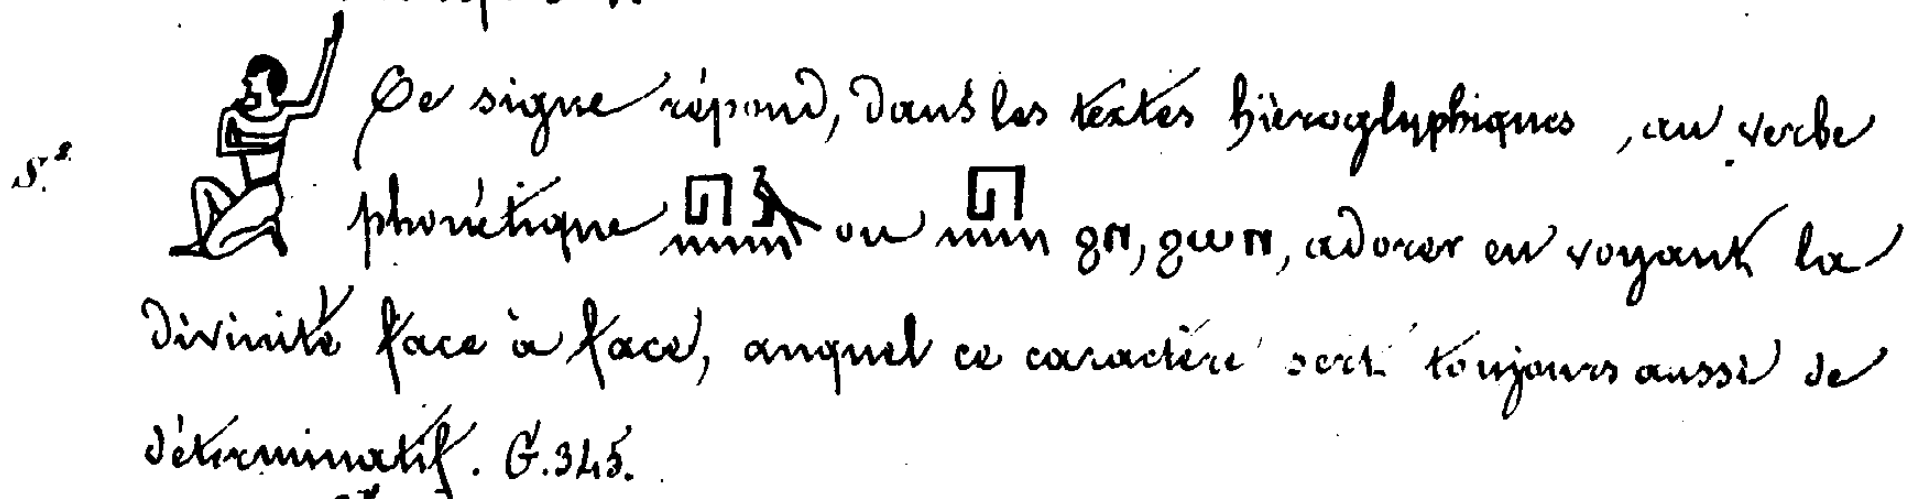 S.² Ce signe répond, dans les textes hiéroglyphiques, au verbe
phonétique 𓉔𓅱𓈖 ou 𓉔𓈖 ϩⲛ, ϩⲱⲛ, adorer en voyant la
divinité face à face, auquel ce caractère sert toujours aussi de
déterminatif. G. 345.